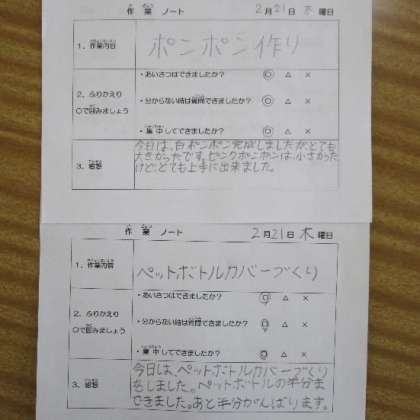 作業ノート 2月21日木曜日
1. 作業内容 ポンポン作り
2. ふりかえり ○で囲みましょう
・あいさつはできましたか? ◎ △ ×
・分からない時は質問できましたか? ◎ △ ×
・集中してできましたか? ◎ △ ×
3. 感想
今日は、白ポンポン完成しましたが、とても
大きかったです。ピンクポンポンは、小さかった
けど、とても上手に出来ました。
作業ノート 2月21日木曜日
1. 作業内容 ペットボトルカバーづくり
2. ふりかえり ○で囲みましょう
・あいさつはできましたか? ◎ △ ×
・分からない時は質問できましたか? ◎ △ ×
・集中してできましたか? ◎ △ ×
3. 感想
今日は、ペットボトルカバーづくり
をしました。ペットボトルの半分ま
できました。あと半分がんばります。